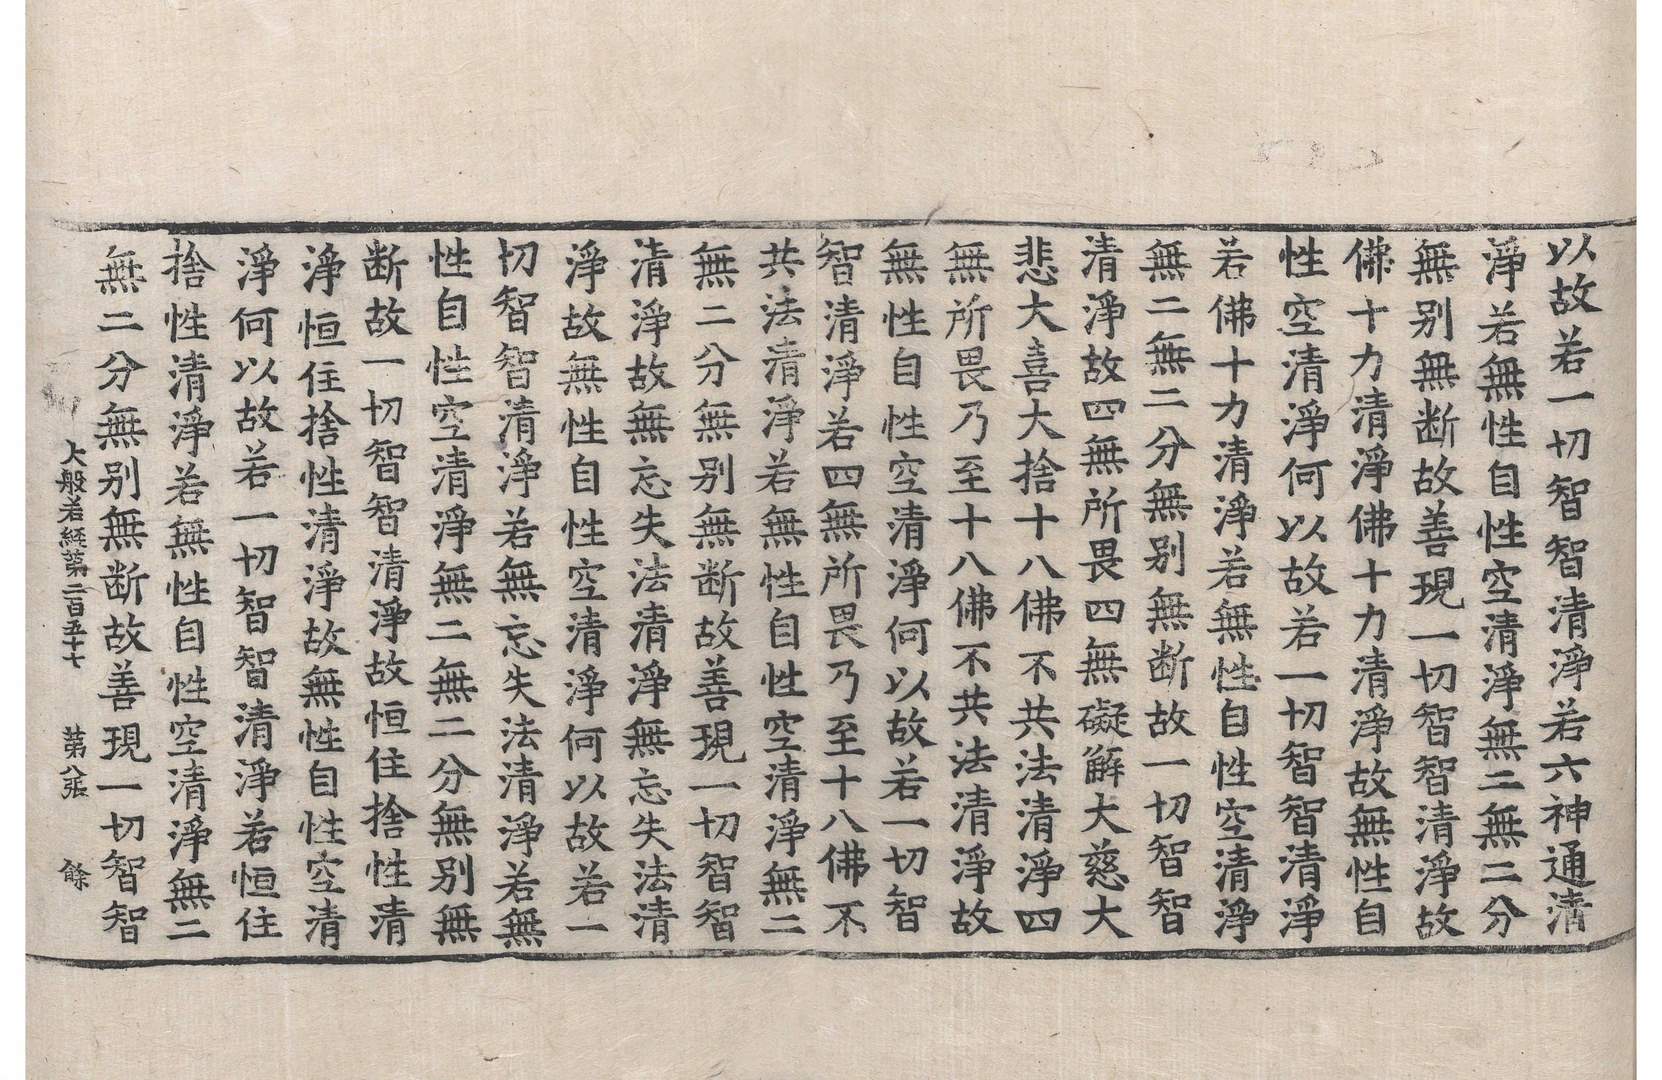 以故若一切智智清淨若六神通清
淨若無性自性空清淨無二無二分
無別無断故善現一切智智清淨故
佛十力清淨佛十力清淨故無性自
性空清淨何以故若一切智智清淨
若佛十力清淨若無性自性空清淨
無二無二分無別無断故一切智智
清淨故四無所畏四無礙解大慈大
悲大喜大捨十八佛不共法清淨四
無所畏乃至十八佛不共法清淨故
無性自性空清淨何以故若一切智
智清淨若四無所畏乃至十八佛不
共法清淨若無性自性空清淨無二
無二分無別無断故善現一切智智
清淨故無忘失法清淨無忘失法清
淨故無性自性空清淨何以故若一
切智智清淨若無忘失法清淨若無
性自性空清淨無二無二分無別無
断故一切智智清淨故恒住捨性清
淨恒住捨性清淨故無性自性空清
淨何以故若一切智智清淨若恒住
捨性清淨若無性自性空清淨無二
無二分無別無断故善現一切智智
大般若經第二百五十七 第八張 餘